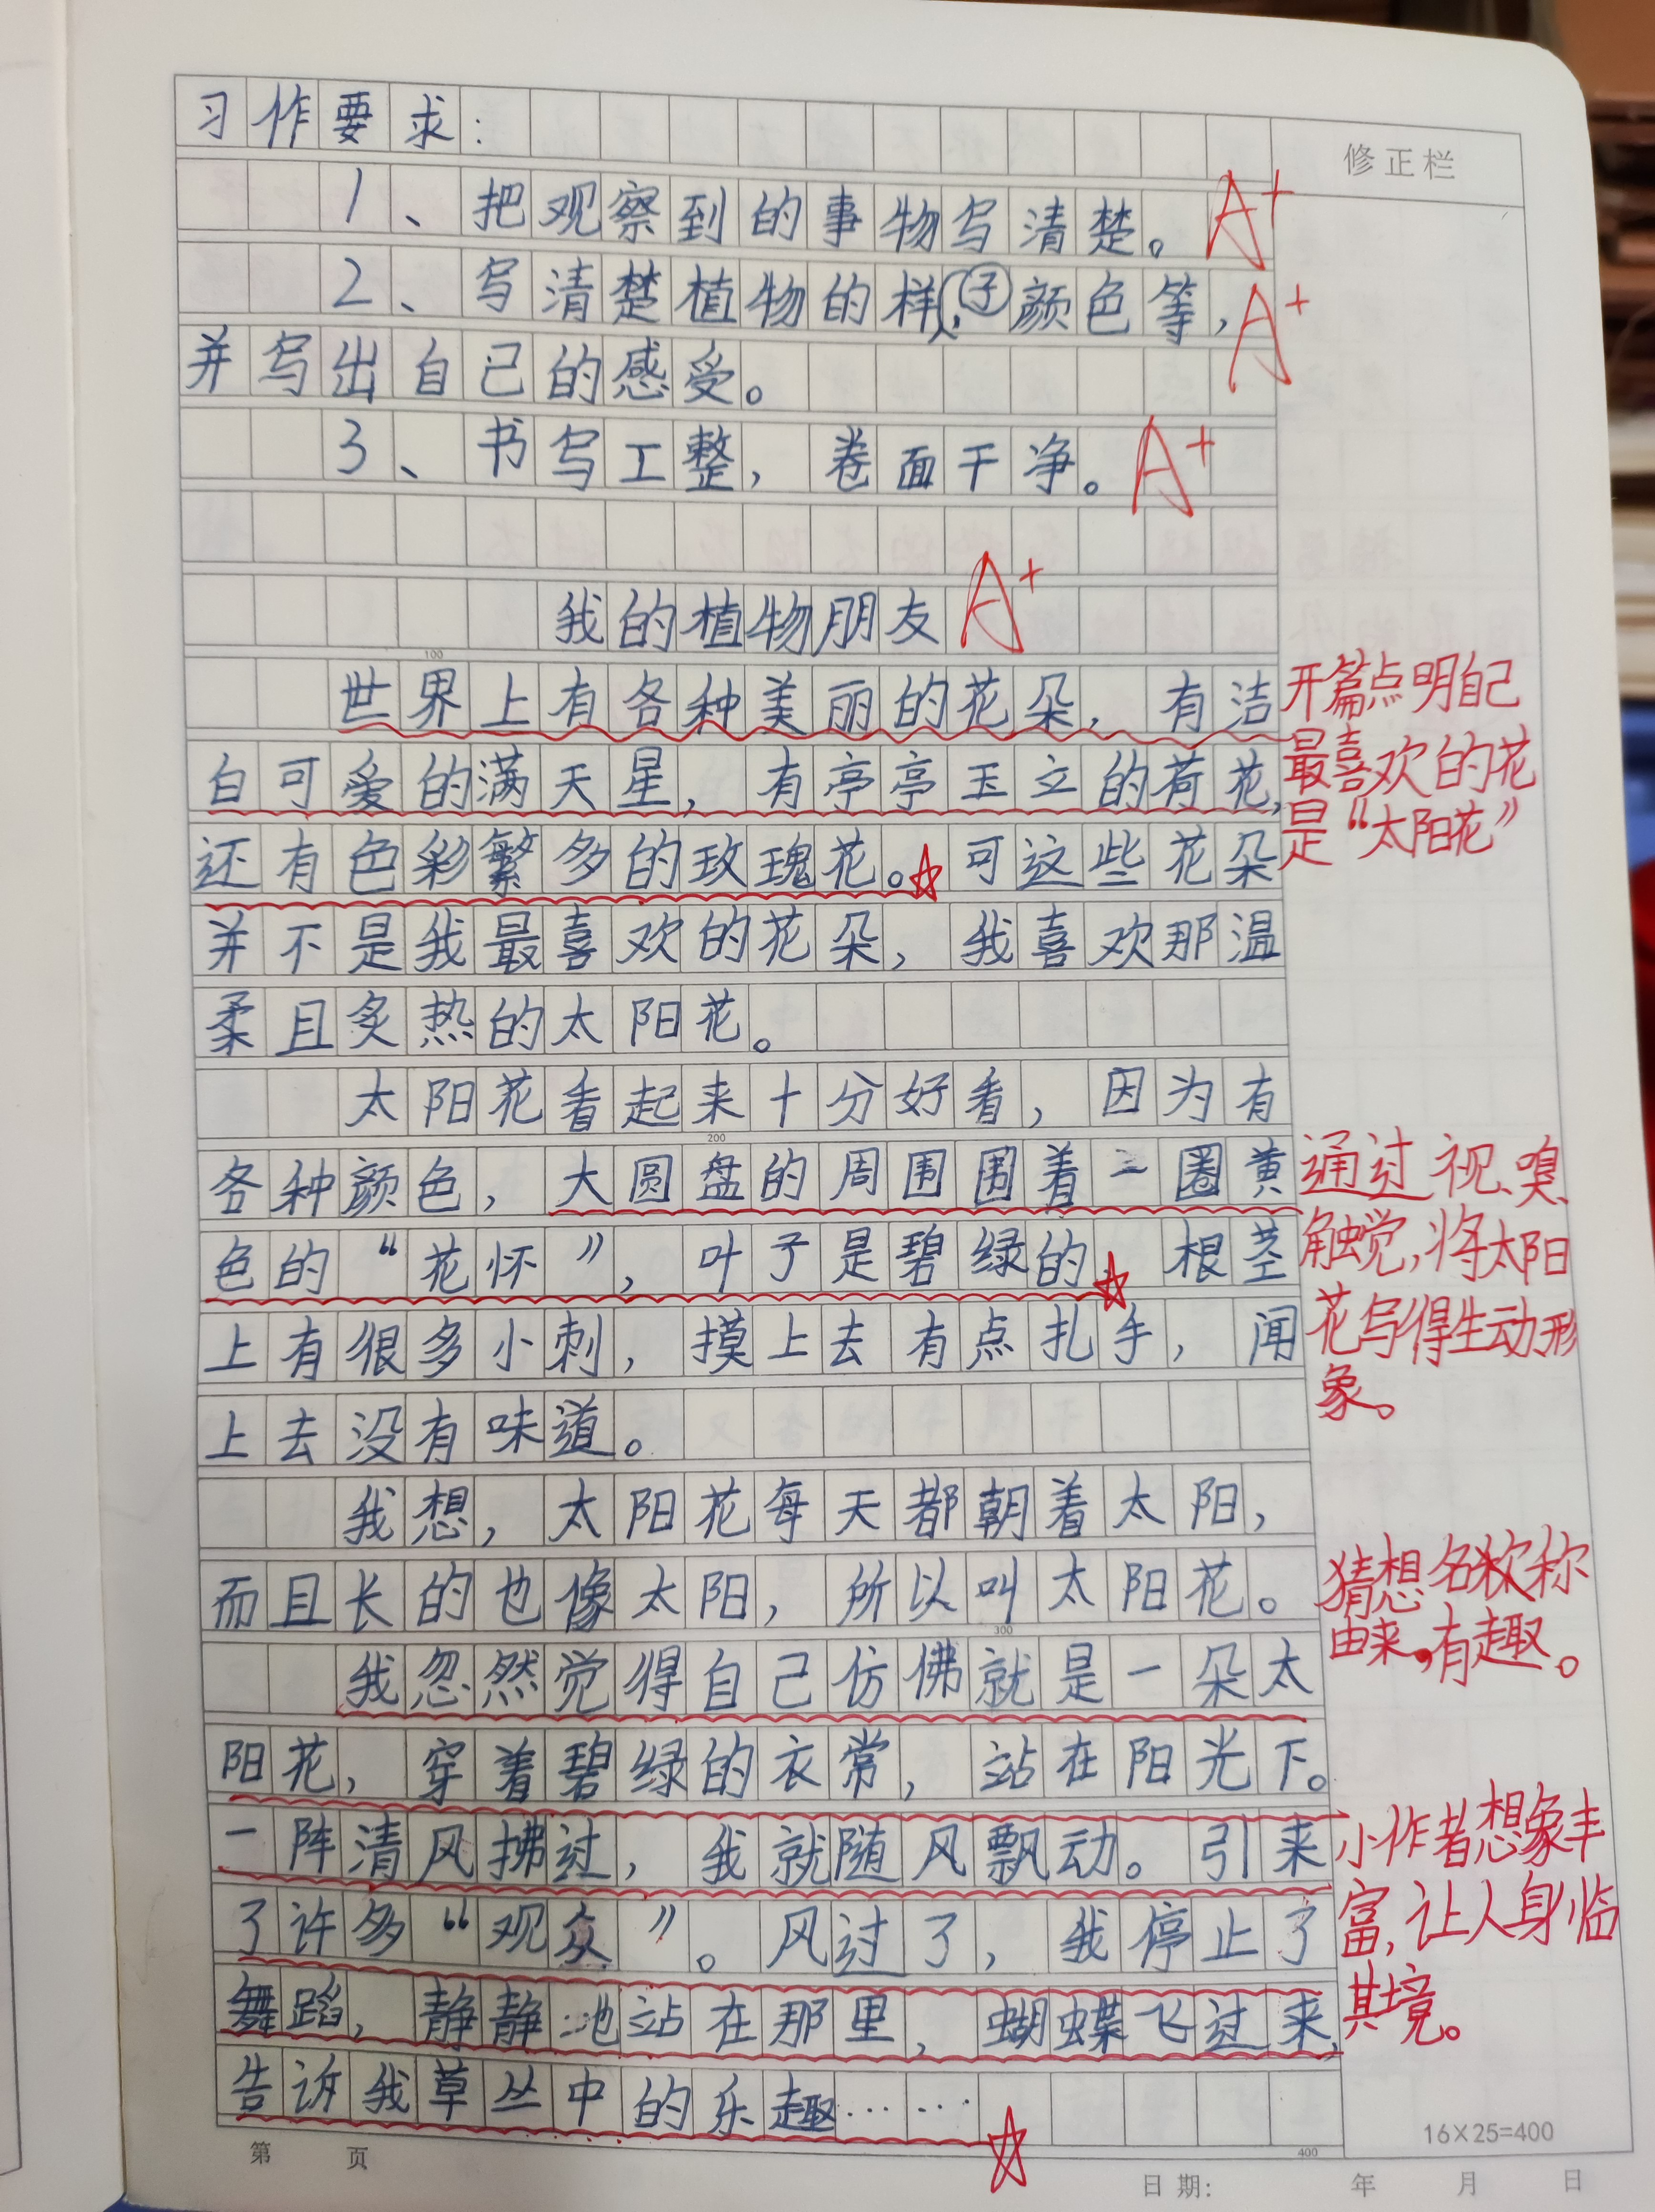 习作要求:
修正栏
1、把观察到的事物写清楚。A+
2、写清楚植物的样子、颜色等,A+
并写出自己的感受。
3、书写工整,卷面干净。A+
我的植物朋友 A+
100
世界上有各种美丽的花朵,有洁
白可爱的满天星,有亭亭玉立的荷花,
还有色彩繁多的玫瑰花。可这些花朵
并不是我最喜欢的花朵,我喜欢那温
柔且炙热的太阳花。
开篇点明自己
最喜欢的花
是“太阳花”
太阳花看起来十分好看,因为有
200
各种颜色,大圆盘的周围围着一圈黄
色的“花怀”,叶子是碧绿的,根茎
上有很多小刺,摸上去有点扎手,闻
上去没有味道。
通过视、嗅、
触觉,将太阳
花写得生动形
象。
我想,太阳花每天都朝着太阳,
而且长的也像太阳,所以叫太阳花。
300
猜想名称
由来,有趣。
我忽然觉得自己仿佛就是一朵太
阳花,穿着碧绿的衣常,站在阳光下。
一阵清风拂过,我就随风飘动。引来
了许多“观众”。风过了,我停止了
舞蹈,静静地站在那里,蝴蝶飞过来,
告诉我草丛中的乐趣……
小作者想象丰
富,让人身临
其境。
16×25=400
400
第 页
日期: 年 月 日